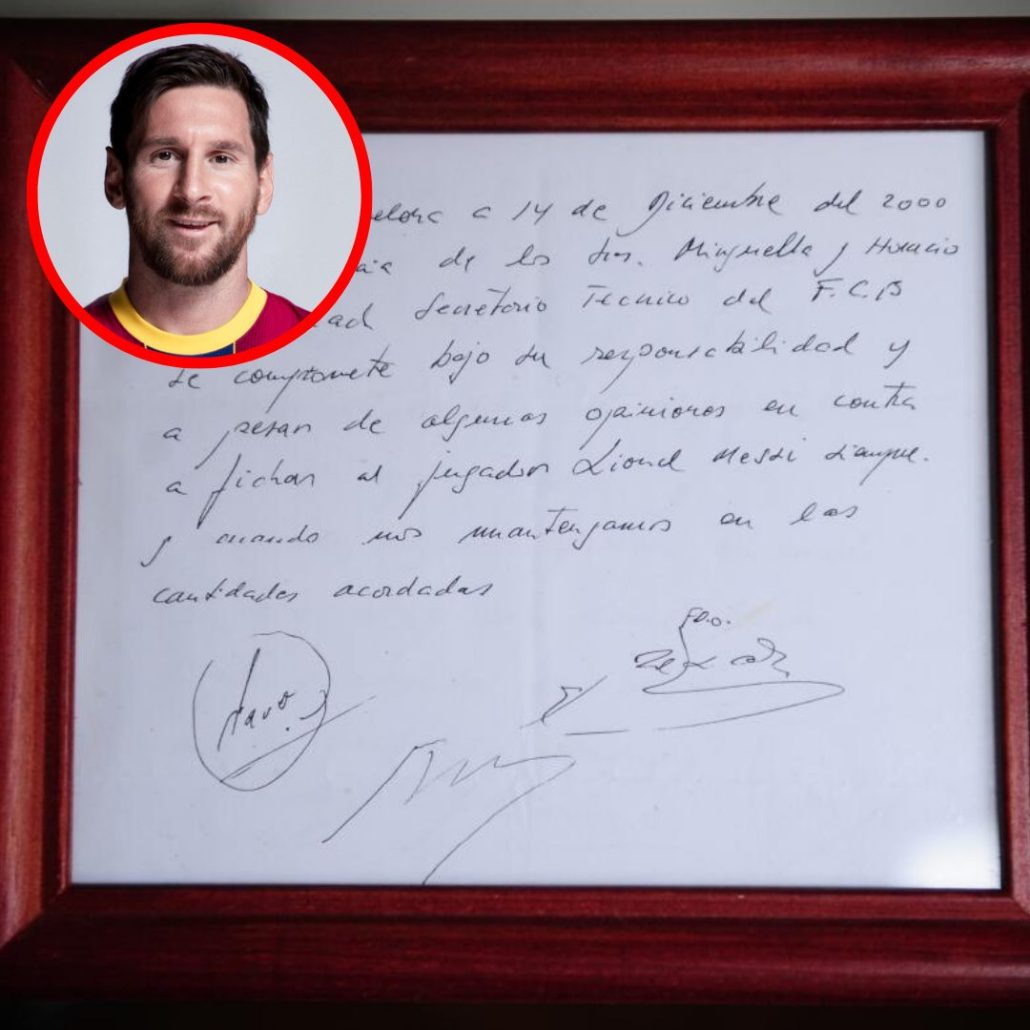 elona a 14 de Diciembre del 2000
cia de los Sres. Minguella y Horacio
ad Secretario Tecnico del F.C.B
se compromete bajo su responsabilidad y
a pesar de algunas opiniones en contra
a fichar al jugador Lionel Messi siempre
y cuando nos mantengamos en las
cantidades acordadas
FDO.